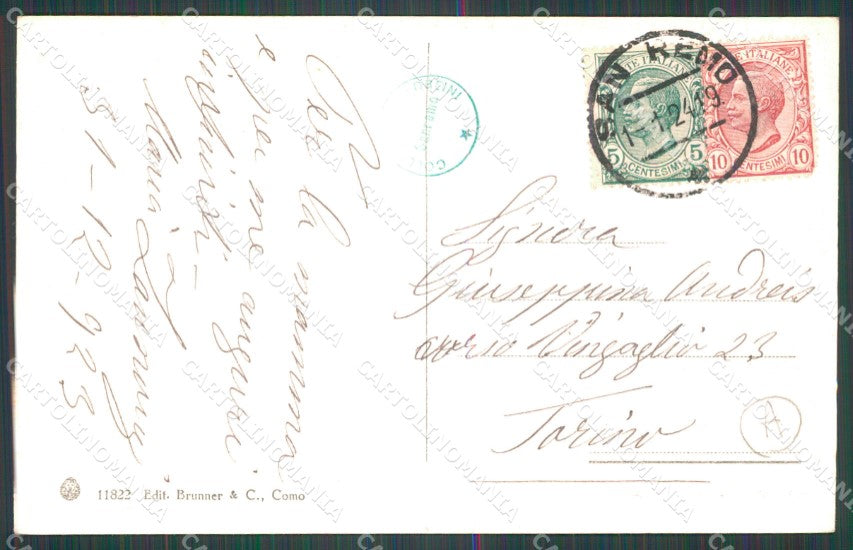 Per la mamma
e per me auguri
infiniti -
Maria
31-12-923
Signora
Giuseppina Andreis
corso Vinzaglio 23
Torino
SAN REMO
1 - 1.24.19
POSTE ITALIANE
5 5
CENTESIMI
POSTE ITALIANE
10 10
CENTESIMI
11822 Edit. Brunner & C., Como
CARTOLINOMANIA